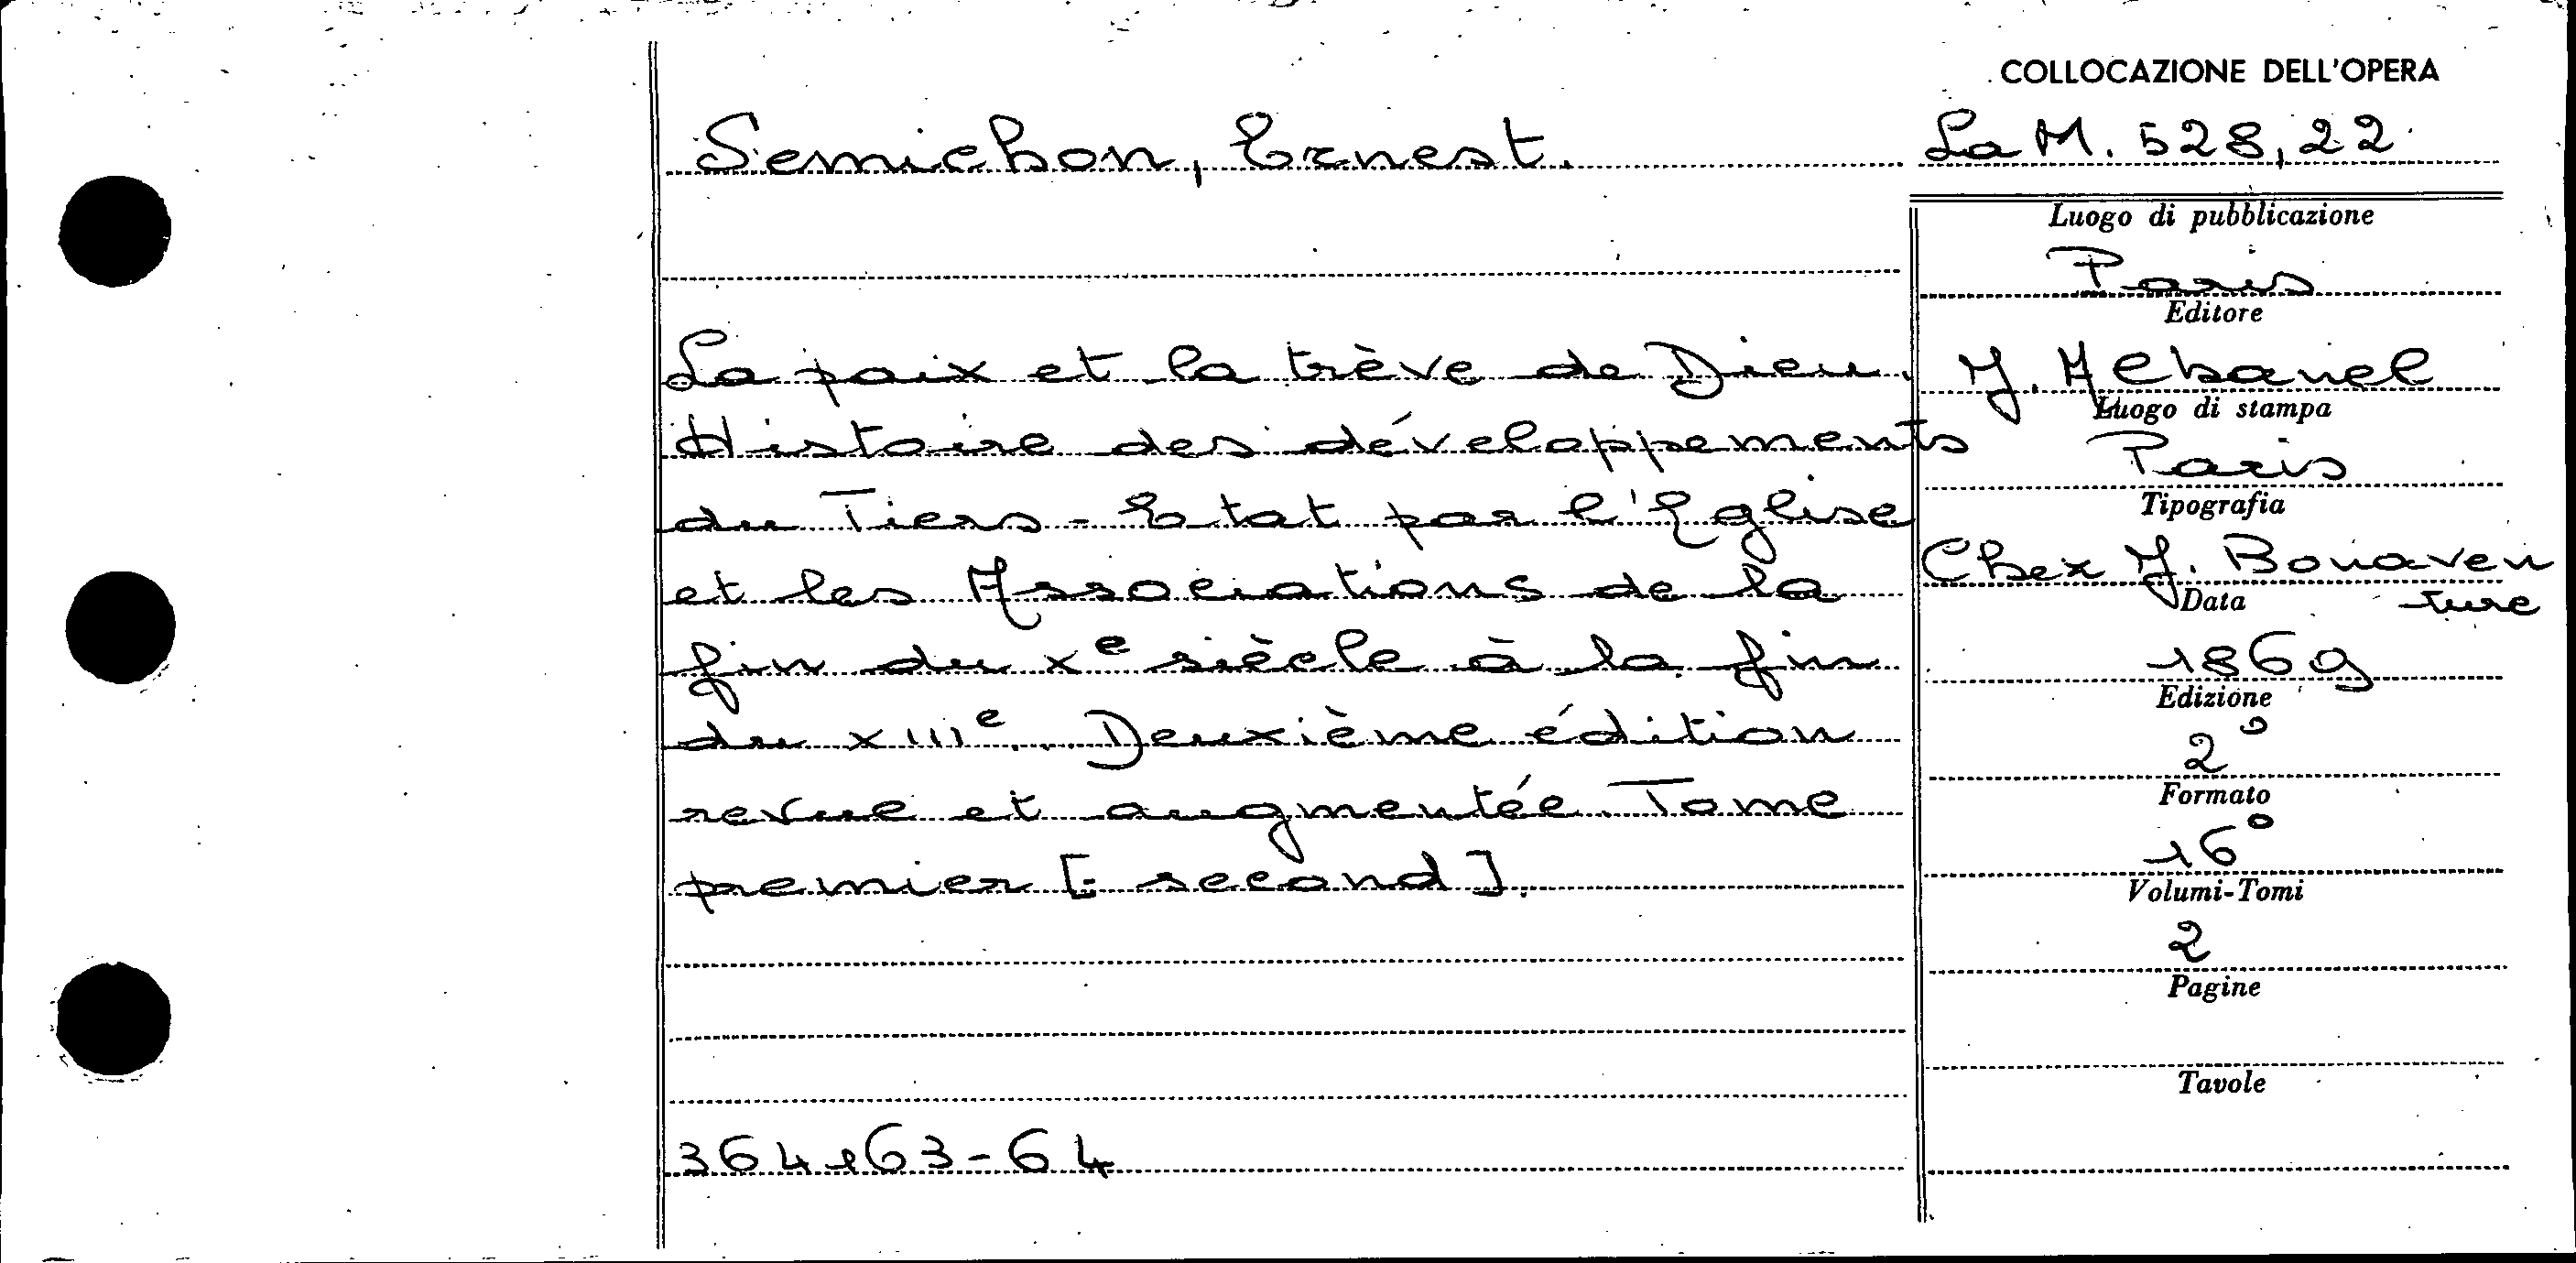 COLLOCAZIONE DELL'OPERA
Semichon, Ernest.
La M. 528,22
La paix et la trève de Dieu.
Histoire des développements
du Tiers-Etat par l'Eglise
et les Associations de la
fin du Xe siècle à la fin
du XIIIe. Deuxième édition
revue et augmentée. Tome
premier [- second].
364163-64
Luogo di pubblicazione
Paris
Editore
J. Albanel
Luogo di stampa
Paris
Tipografia
Chex J. Bonaven
ture
Data
1869
Edizione
2°
Formato
16°
Volumi-Tomi
2
Pagine
Tavole